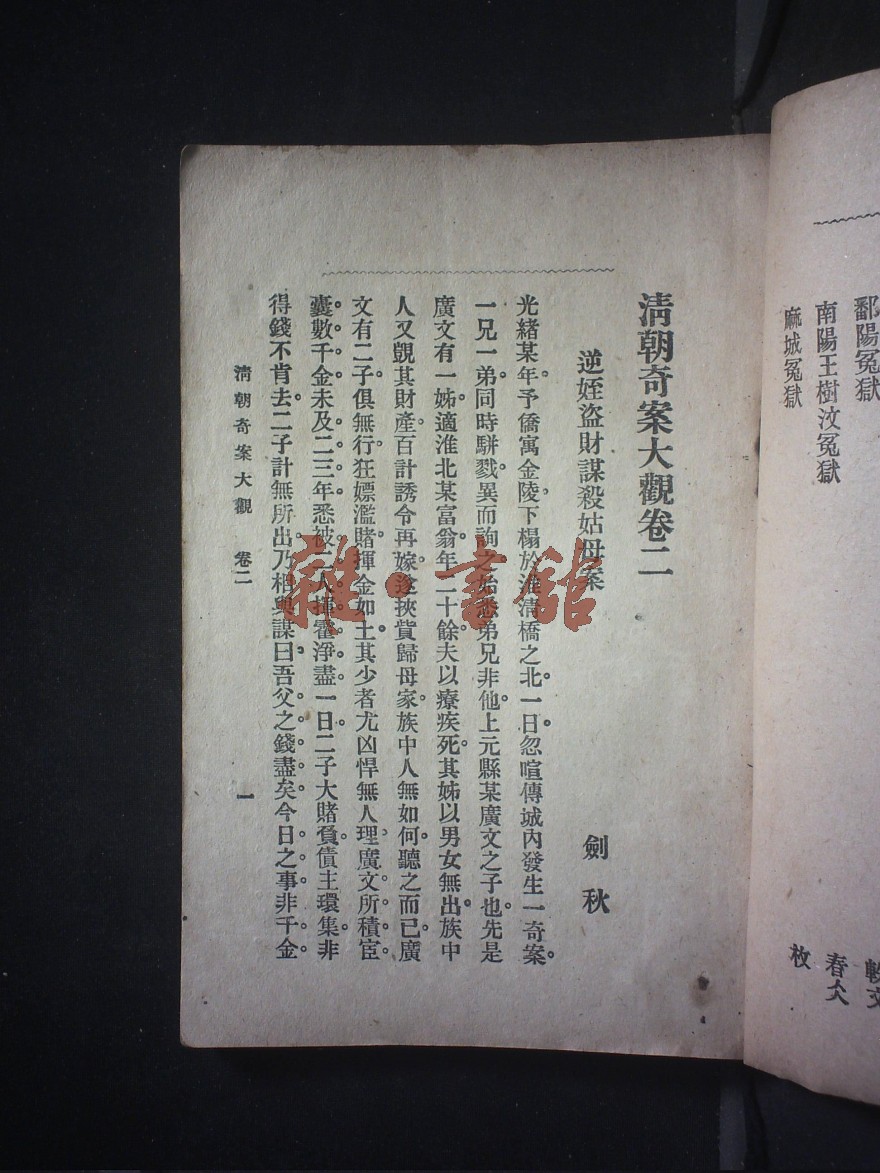 鄱陽冤獄
南陽王樹汶冤獄
麻城冤獄
春仌
枚
清朝奇案大觀卷二
逆姪盜財謀殺姑母案
劍秋
光緒某年予僑寓金陵下榻於淮清橋之北一日忽喧傳城內發生一奇案。
一兄一弟同時駢戮異而詢之始悉弟兄非他上元縣某廣文之子也先是
廣文有一姊適淮北某富翁年二十餘夫以療疾死其姊以男女無出族中
人又覬其財產百計誘令再嫁遂挾貲歸母家族中人無如何聽之而已廣
文有二子俱無行狂嫖濫賭揮金如土其少者尤凶悍無人理廣文所積宦
囊數千金未及二三年悉被二人揮霍淨盡一日二子大賭負債主環集非
得錢不肯去二子計無所出乃相與謀曰吾父之錢盡矣今日之事非千金
清朝奇案大觀 卷二
一
雜·書館